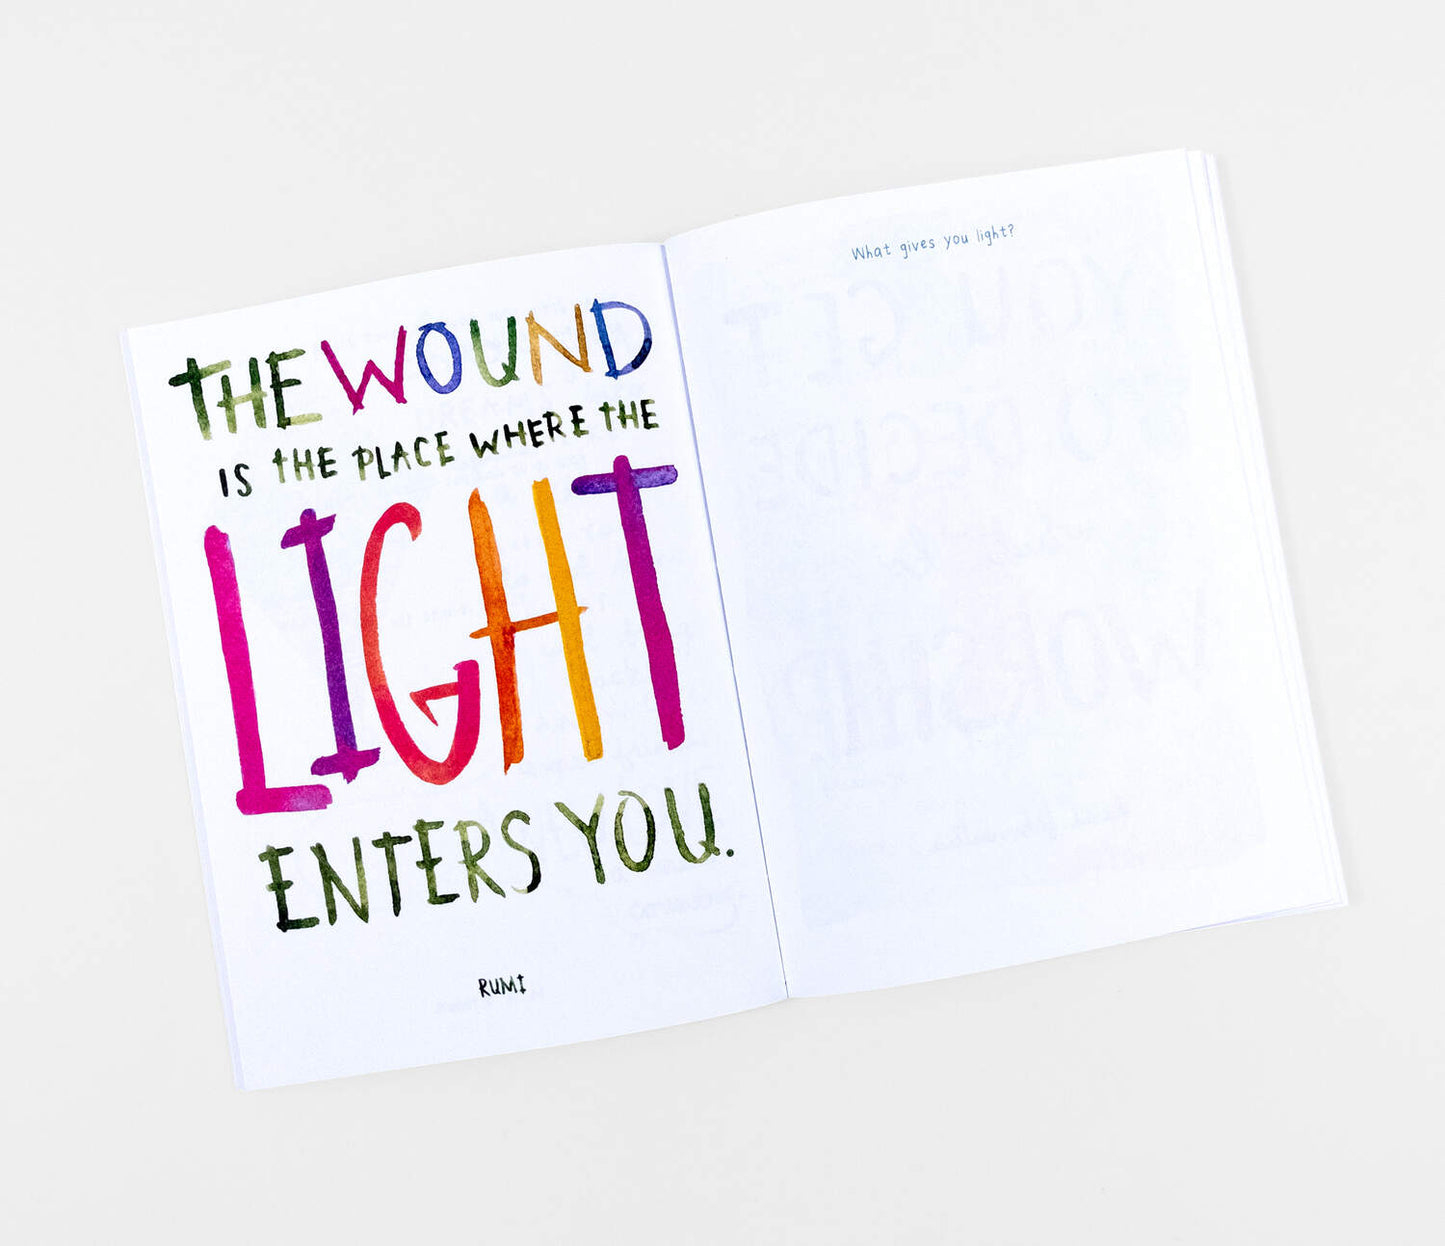 THE WOUND
IS THE PLACE WHERE THE
LIGHT
ENTERS YOU.
RUMI
What gives you light?